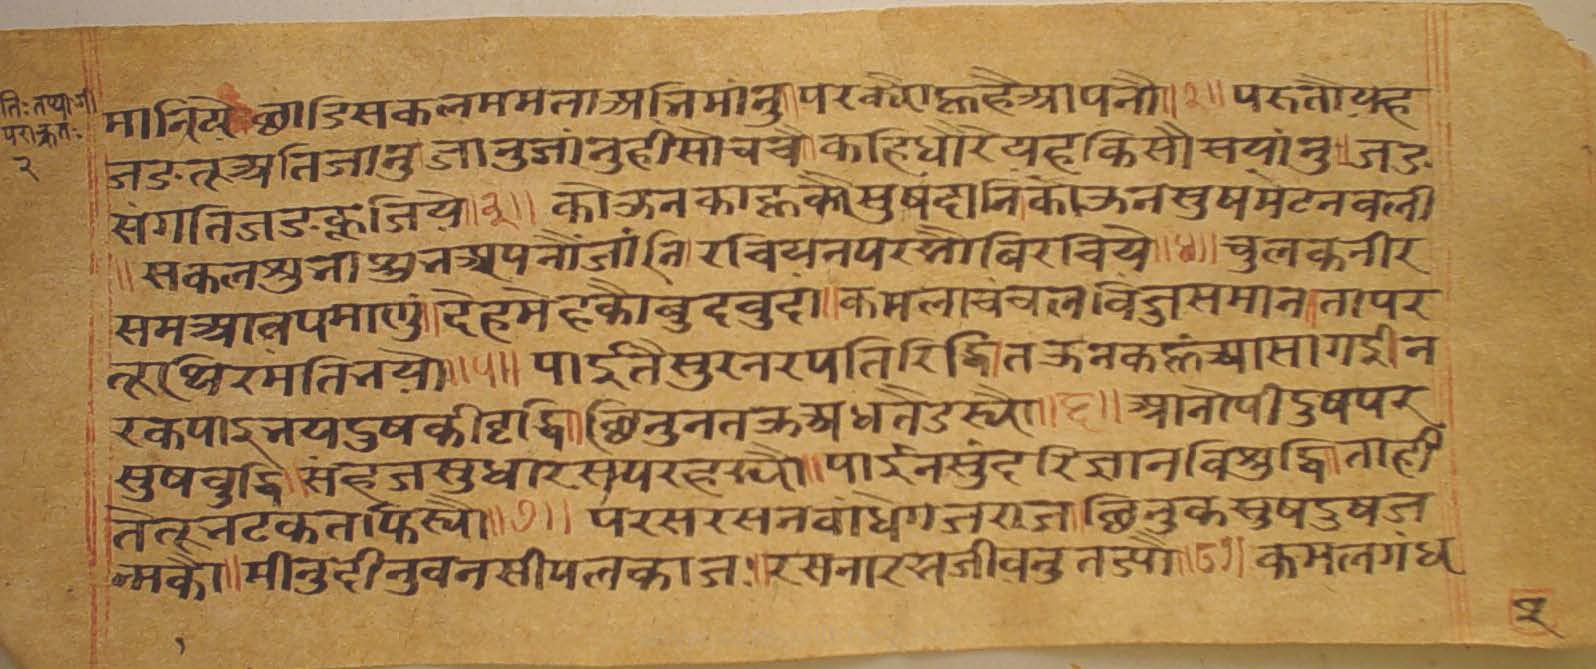 तिः तथा जी
पराक्रतः
२
मानियै छाडि सकल ममता अभिमांनु॥ पर कौं कहै आपनौ॥२॥ परु तौ यह
जड तू अति जानु जानु जांनु ही सौ चचै॥ कहि धौरै यह किसौ सयांनु॥ जड
संगति जड कूजिये॥३॥ कोऊ न काहू कौ सुषदांनि। कोऊ न सुष मेटन वली
॥ सकल शुभाशुभ अपनौं जांनि। रचियै न पर सौ विरचिये॥४॥ चुलक नीर
सम आव पमाणुं॥ देह मेह कौ बुदबुदा॥ कमला चंचल विजु समान। ता पर
तू थिर मति भयो॥५॥ पाई तै सुर नरपति रिद्धि। तऊ न कहूं आसा गई॥ न
रक पाई भय दुष की वृद्धि॥ छिनु न तऊ अध तै डस्यौ॥६॥ आनोपी दुष पर
सुष बुद्धि॥ सहज सुधारस परहस्यौ॥ पाई न सुंदरि ज्ञान विशुद्धि। ताही
तै तू भटकता फिस्यौ॥७॥ परस रस न वांधे गजराज॥ छिनुक सुष दुष ज
न्म कौ॥ मीनु दीनु वनसी पल काज॥ रसना रस जीवनु तज्यौ॥८॥ कमल गंध
२